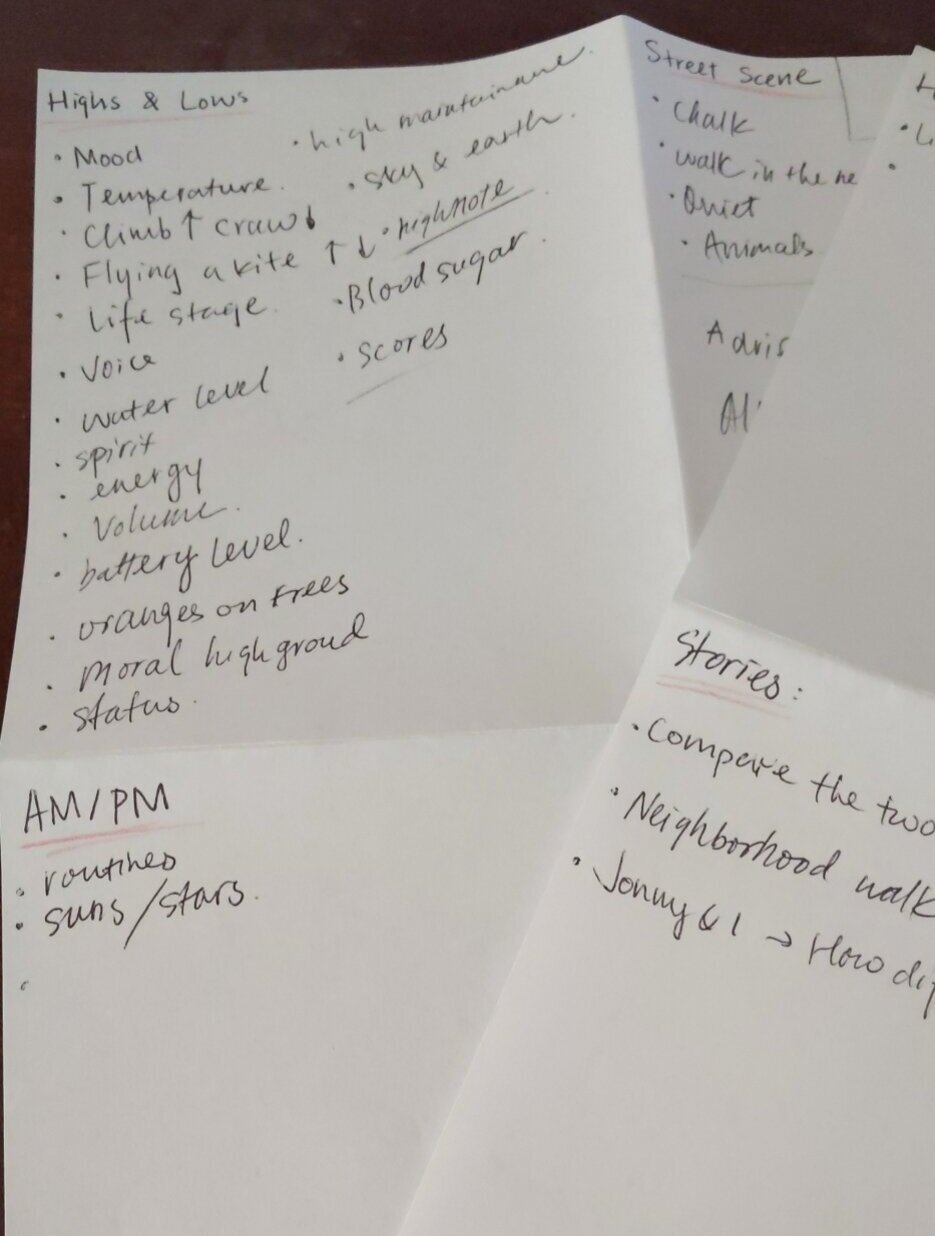 Highs & Lows
• Mood
• Temperature.
• Climb ↑ craw↓
• Flying a kite ↑↓
• Life stage.
• Voice
• water level
• spirit
• energy
• Volume.
• battery level.
• oranges on trees
• Moral high groud
• status.
• high maintainane.
• sky & earth.
• highnote
• Blood sugar.
• scores
Street Scene
• Chalk
• walk in the ne
• Quiet
• Animals
AM/PM
• routines
• suns/stars.
Stories:
• Compare the two
• Neighborhood walk
• Jonny & I → How dif